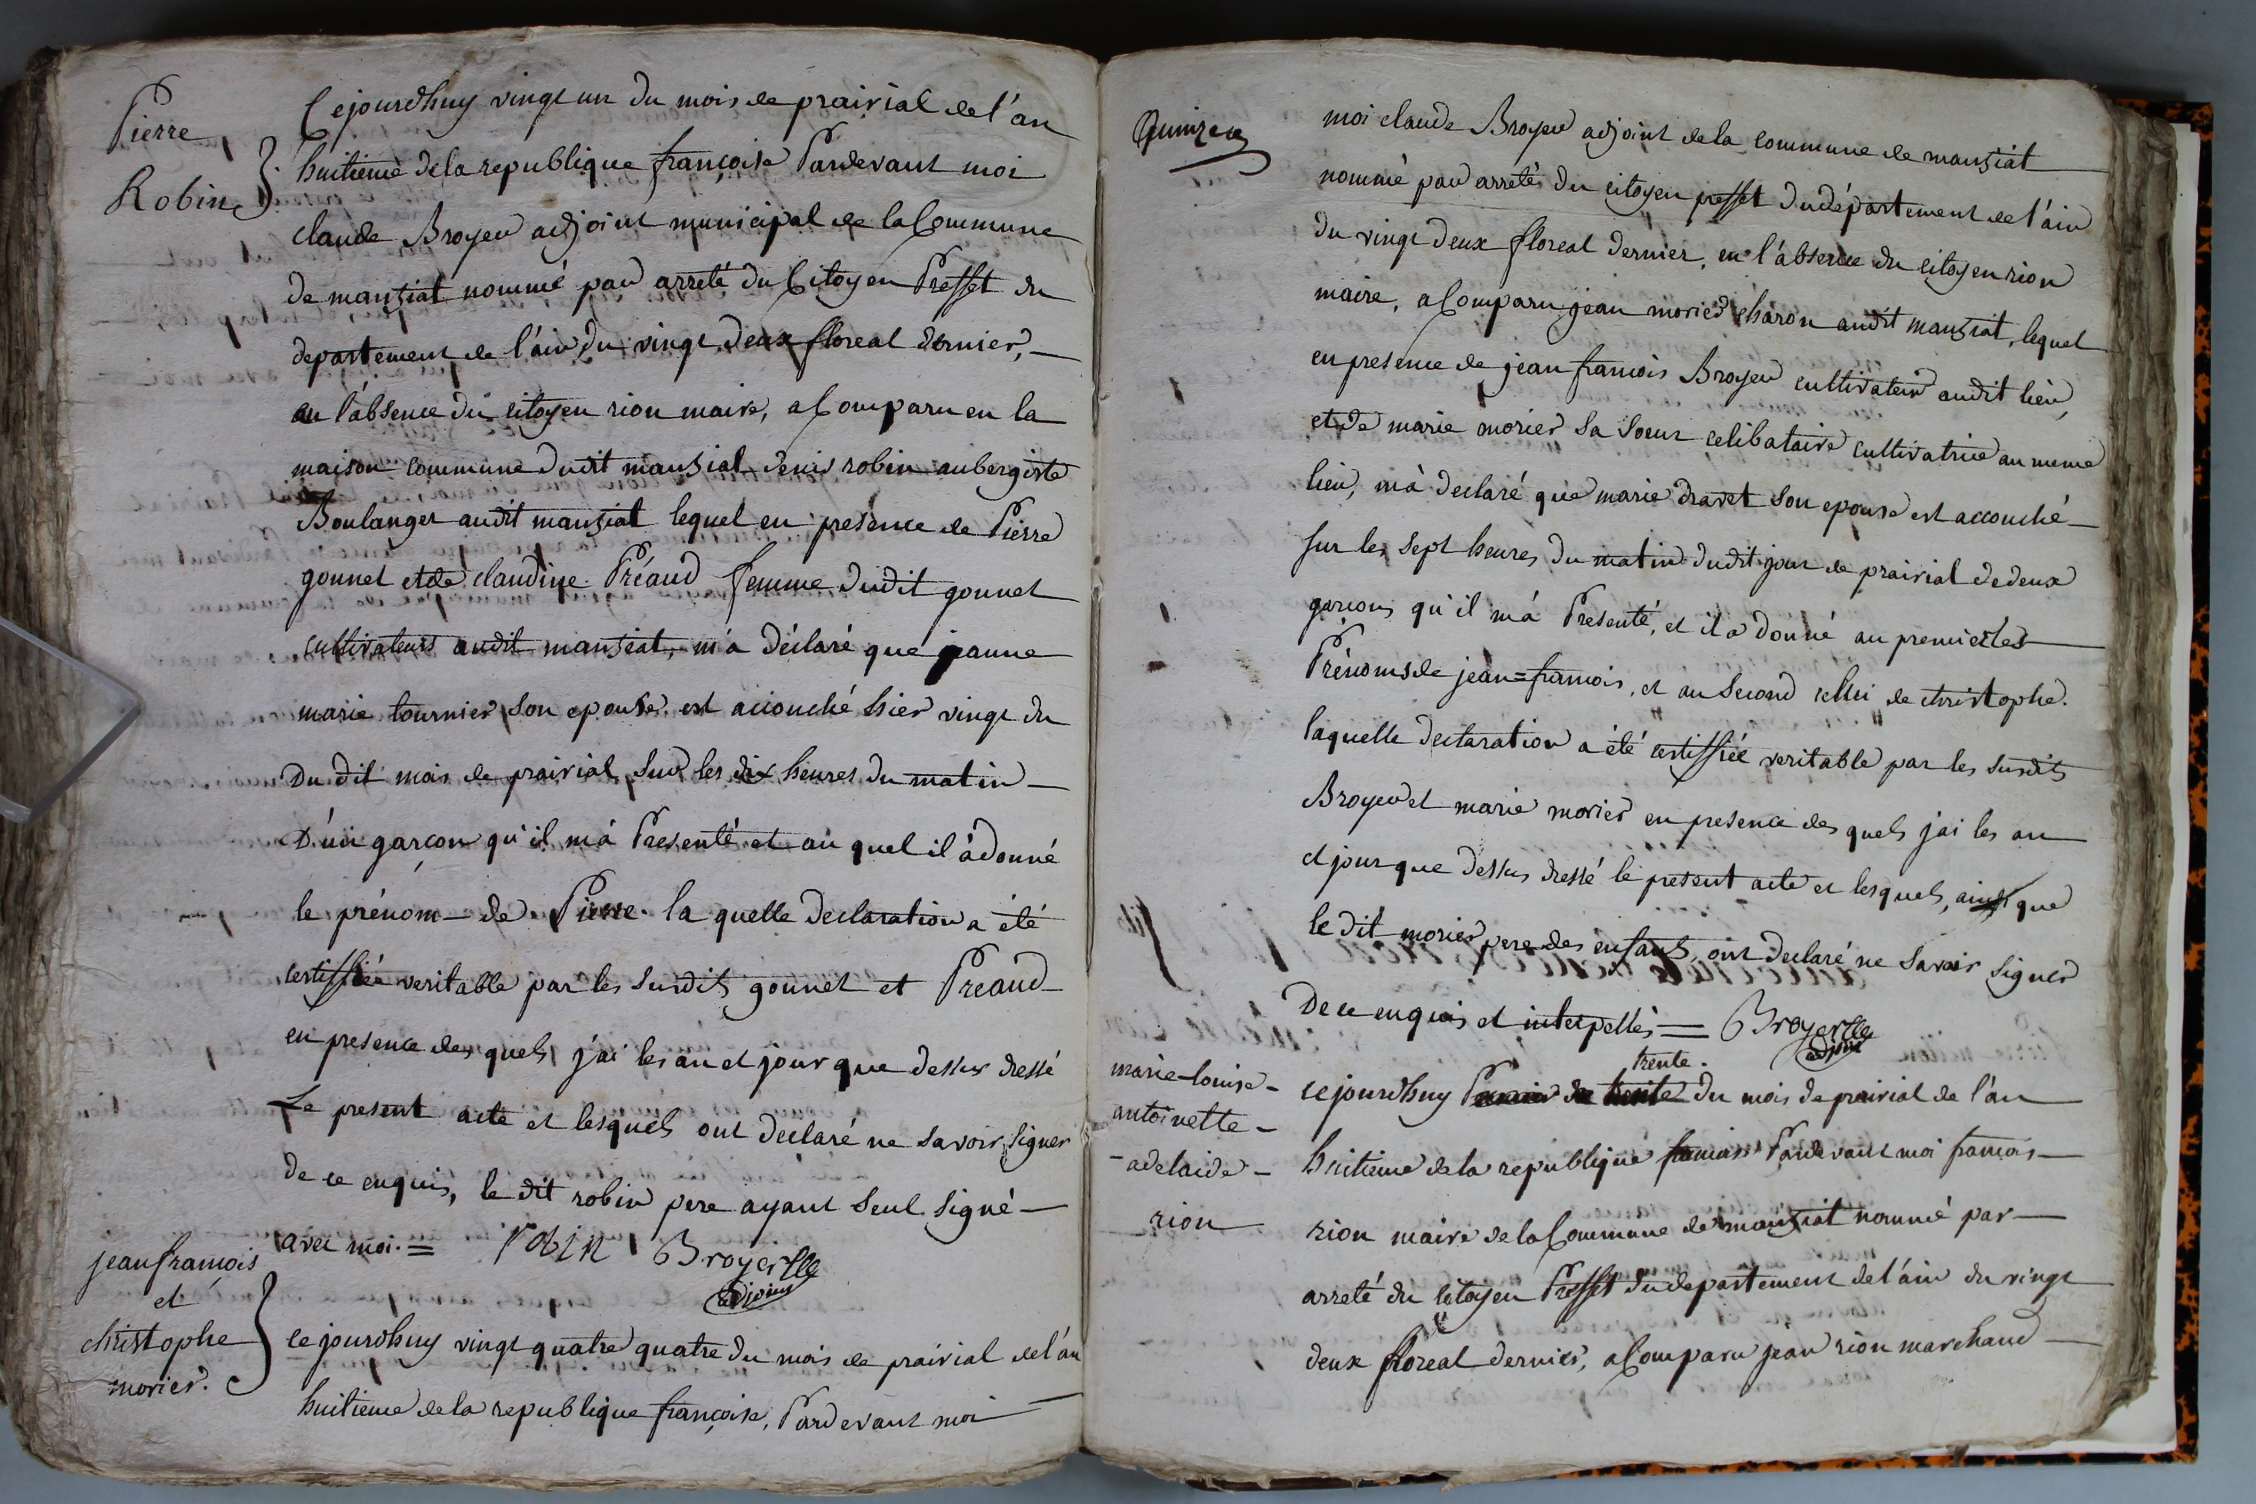 Pierre
Robin
Cejourdhuy vingt un du mois de prairial de l'an
huitieme de la republique françoise Pardevant moi
claude Broyer adjoint municipal de la Commune
de manziat nommé par arreté du Citoyen Preffet du
departement de l'ain, du vingt deux floreal dernier,
en l'absence du citoyen rion maire, a Comparu en la
maison commune dudit manziat denis robin aubergiste
Boulanger audit manziat lequel en presence de Pierre
gonnet et de claudine Préaud femme dudit gonnet
cultivateurs audit manziat, m'a déclaré que jeanne
marie tournier son epouse est accouché hier vingt du
Du dit mois de prairial sur les dix heures du matin
D'un garçon qu'il m'à Presenté et au quel il à donné
le prénom de Pierre. la quelle declaration a été
certiffiée veritable par les susdits gonnet et Preaud
en presence des quels j'ai les an et jour que dessus dressé
Le present acte et lesquels ont declaré ne savoir signer
de ce enquis, le dit robin pere ayant seul signé
avec moi. = robin Broyer
adjoint
jean françois
et
christophe
morier.
cejourdhuy vingt quatre quatre du mois de prairial de l'an
huitieme de la republique françoise, Pardevant moi
Quinze
moi claude Broyer adjoint de la commune de manziat
nommé par arretés du citoyen preffet du département de l'ain
du vingt deux floreal dernier, en l'absence du citoyen rion
maire, a Comparu jean morier charon audit manziat, lequel
en presence de jean francois Broyer cultivateur audit lieu,
et de marie morier sa soeur celibataire cultivatrice au meme
lieu, m'à declaré que marie dravet son epouse est accouché
sur les sept heures du matin dudit jour de prairial de deux
garcons qu'il m'à Presenté, et il a donné au premier les
Prénoms de jean=francois, et au second celui de christophe.
laquelle declaration a été certiffiée veritable par les susdits
Broyer et marie morier en presence des quels j'ai les an
et jour que dessus dressé le present acte et lesquels, ainsi que
le dit morier pere des enfants, ont declaré ne savoir signer
De ce enquis et interpellés = Broyer
adjoint
marie-louise-
antoinette-
-adelaide-
rion
trente.
cejourdhuy du mois de prairial de l'an
huitieme de la republique francais Pardevant moi francois
rion maire de la Commune de manziat nommé par
arreté du citoyen Preffet du departement de l'ain du vingt
deux floreal dernier, a Comparu jean rion marchand